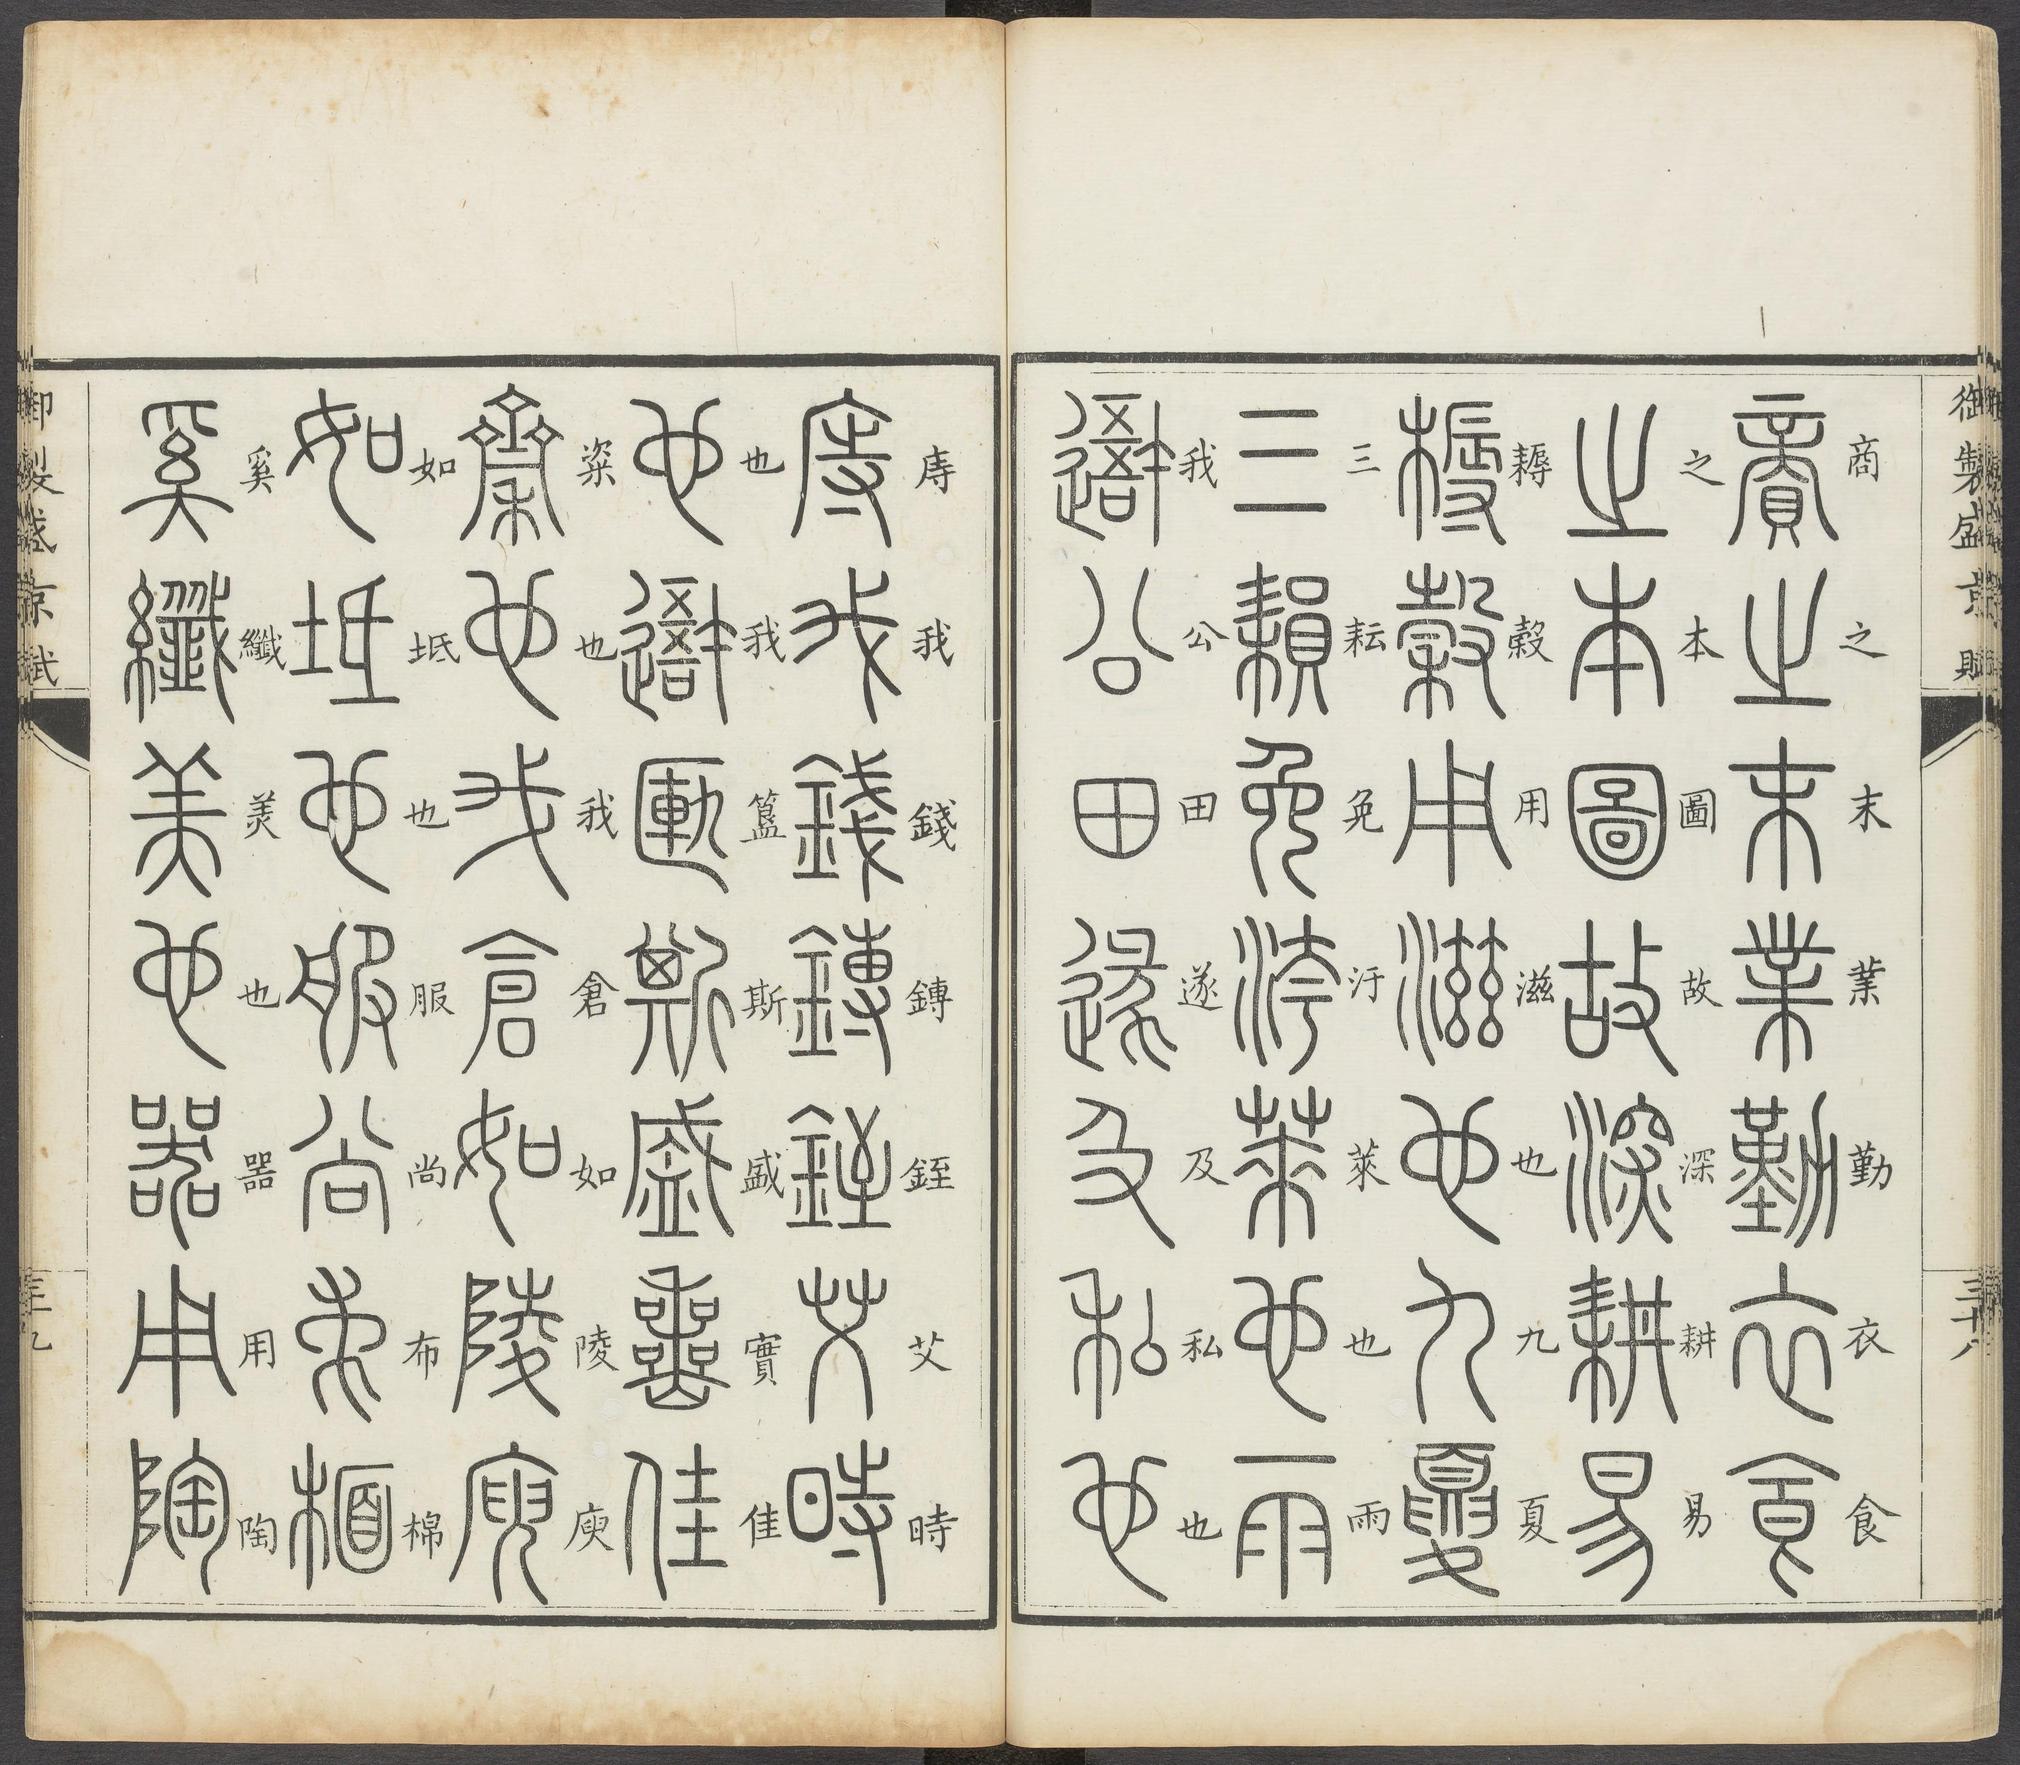 御製盛京賦 三十八
商之末業勤衣食
之本圖故深耕易
耨穀用滋也九夏
三耘免汙萊也雨
我公田遂及私也
庤我錢鎛銍艾時
也我簋斯盛實佳
粢也我倉如陵庾
如坻也服尚布棉
奚纖美也器用陶
御製盛京賦 三十九